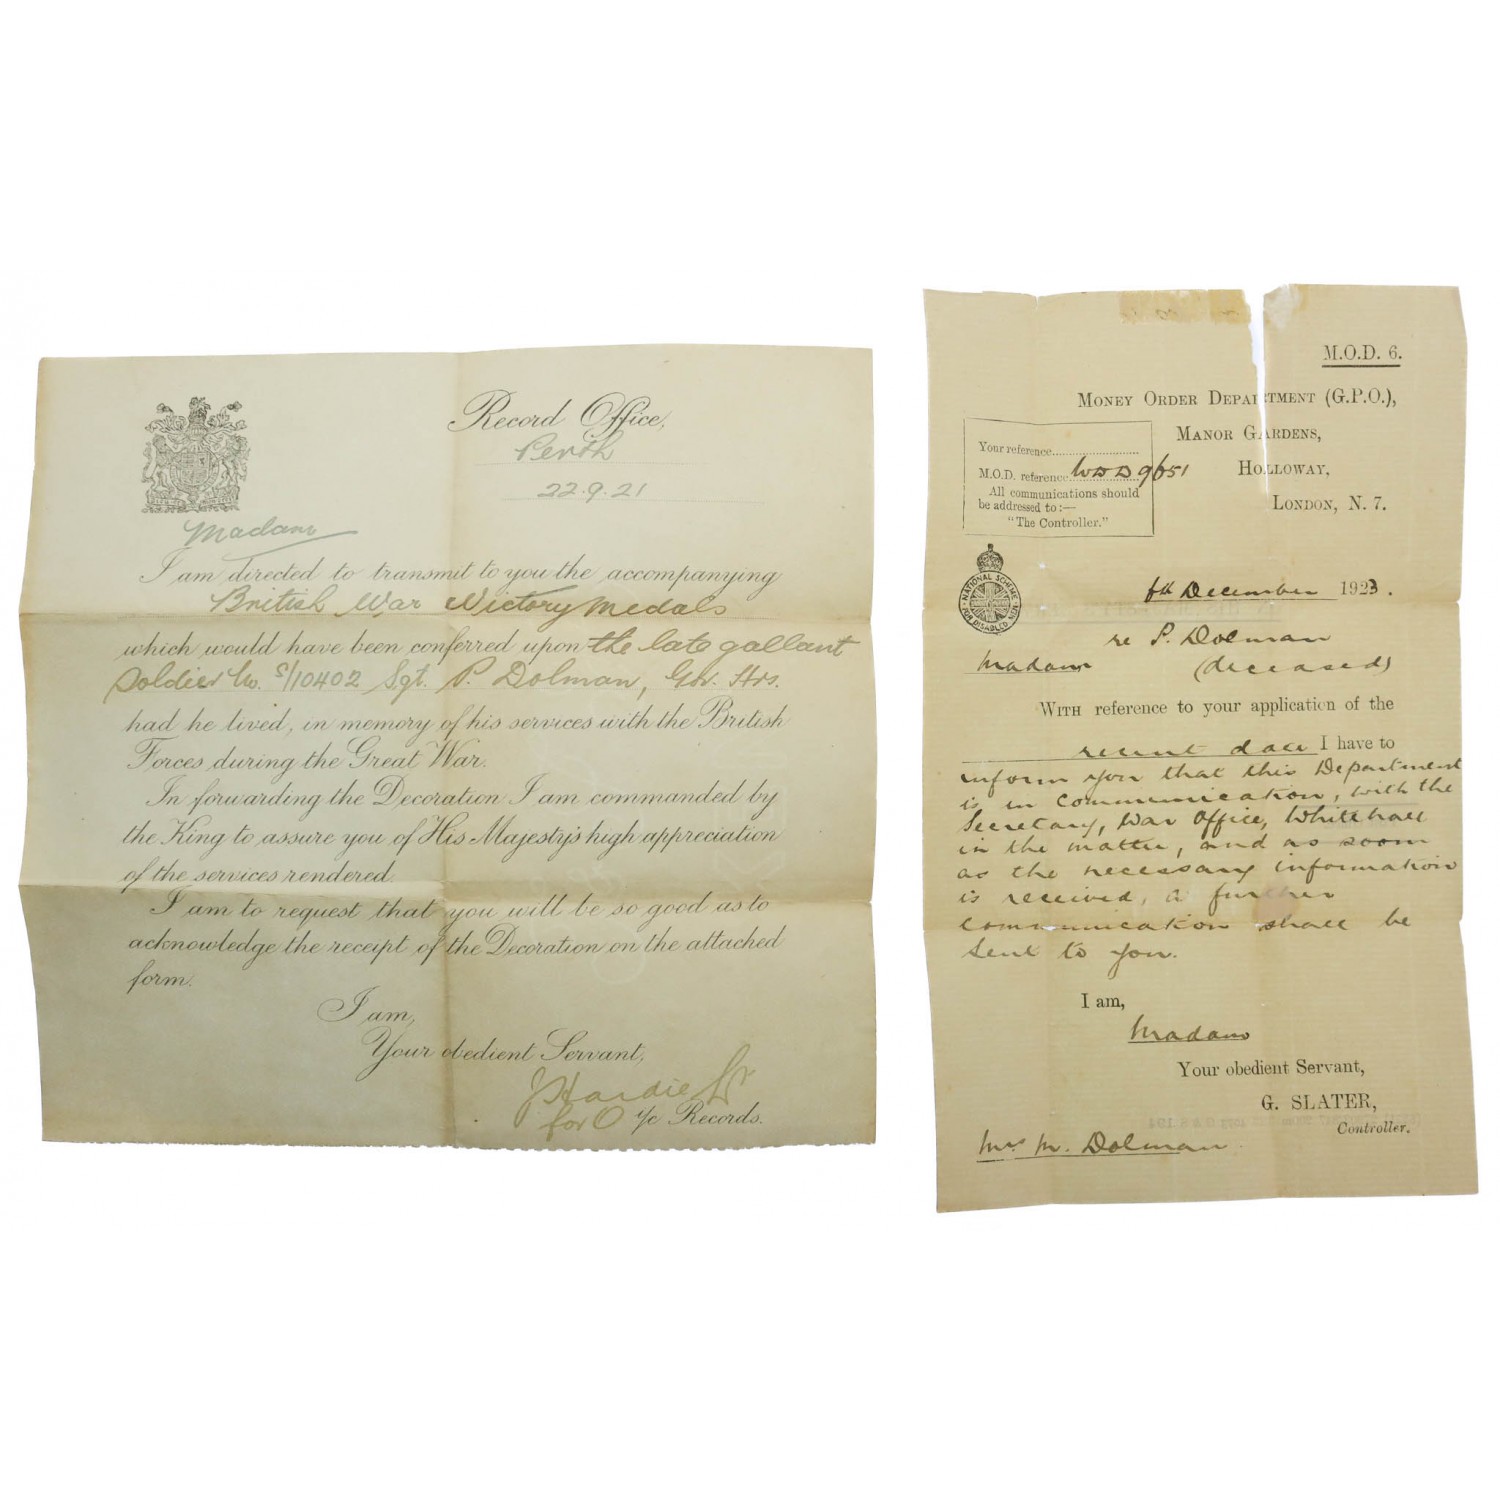 Record Office,
Perth
22.9.21
Madam
I am directed to transmit to you the accompanying
British War Victory Medals
which would have been conferred upon the late gallant
Soldier No. S/10402 Sgt. P. Dolman, Gor. Hrs.
had he lived, in memory of his services with the British
Forces during the Great War.
In forwarding the Decoration I am commanded by
the King to assure you of His Majesty's high appreciation
of the services rendered.
I am to request that you will be so good as to
acknowledge the receipt of the Decoration on the attached
form.
I am,
Your obedient Servant,
J Hardie Lt
for O i/c Records.
M.O.D. 6.
MONEY ORDER DEPARTMENT (G.P.O.),
MANOR GARDENS,
HOLLOWAY,
LONDON, N. 7.
Your reference
M.O.D. reference WDD 9651
All communications should
be addressed to:—
"The Controller."
NATIONAL SCHEME FOR DISABLED MEN
December 1923.
re P. Dolman
Madam (deceased)
WITH reference to your application of the
recent date I have to
inform you that this Department
is in communication, with the
Secretary, War Office, Whitehall
in the matter, and as soon
as the necessary information
is received, a further
communication shall be
sent to you.
I am,
Madam
Your obedient Servant,
G. SLATER,
Controller.
Mrs M. Dolman